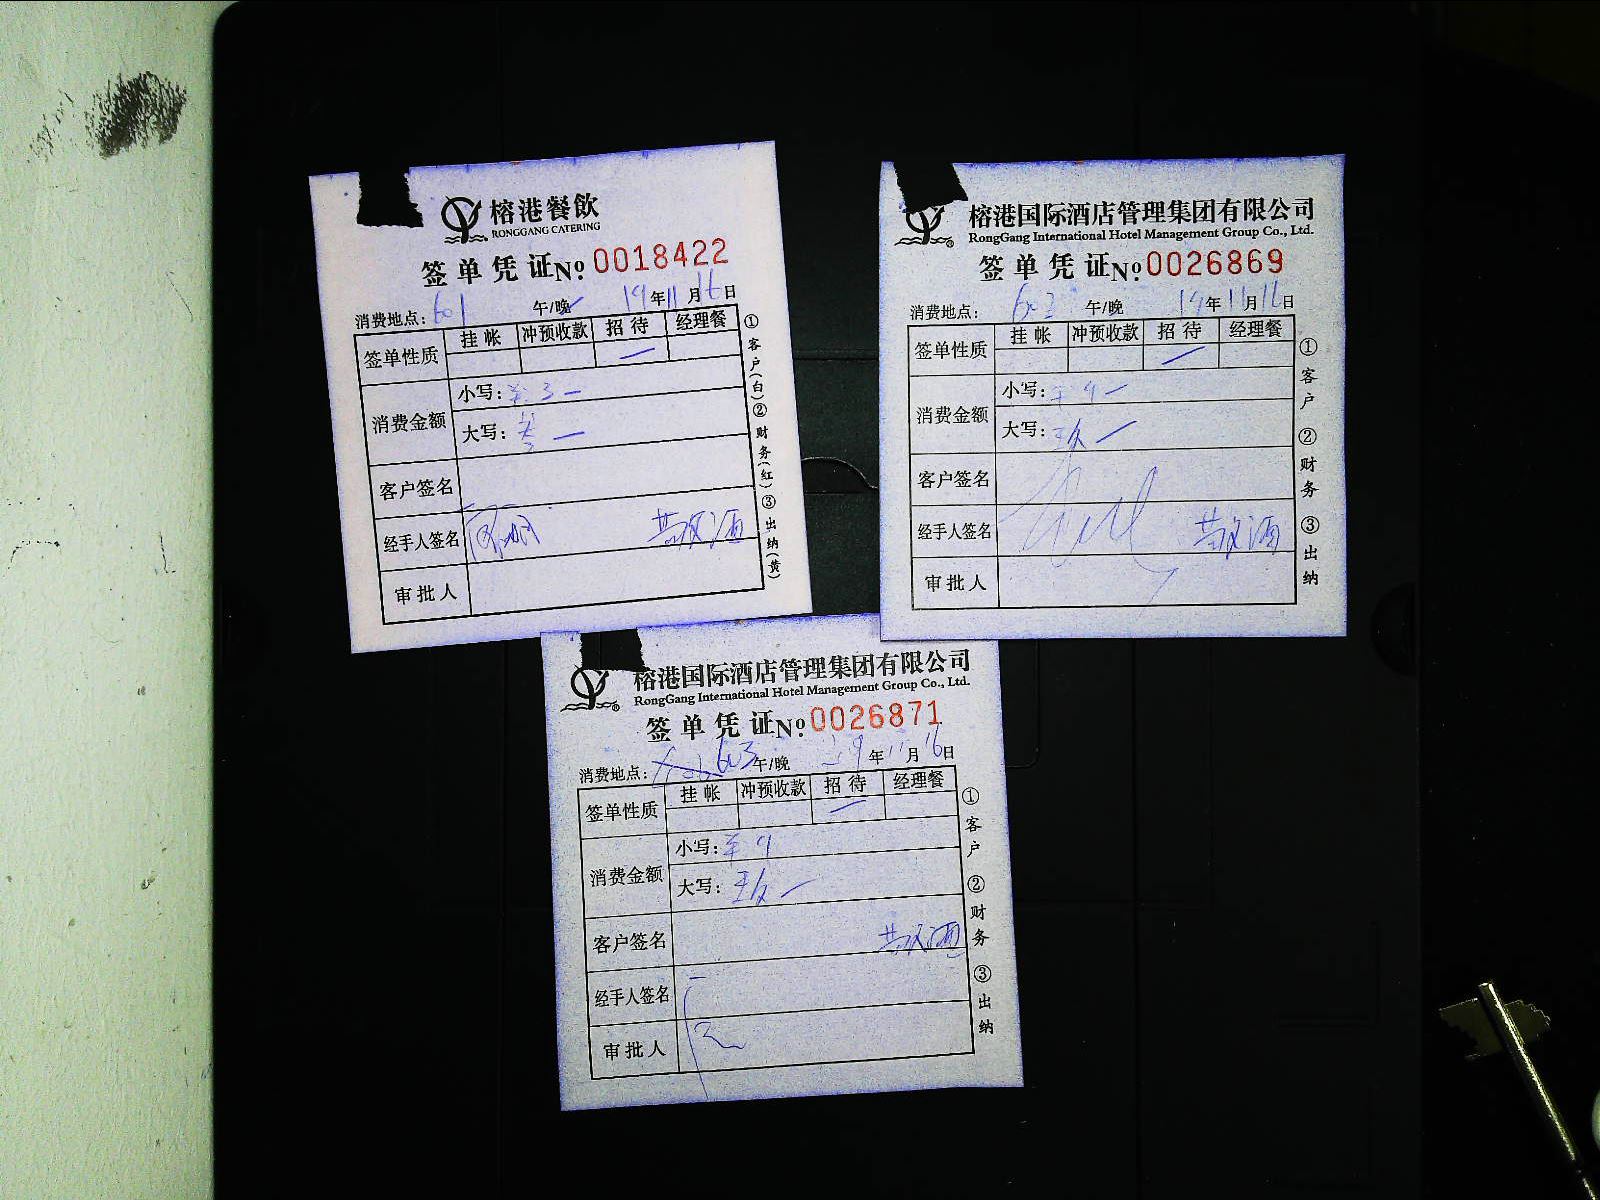 榕港餐飲
RONGGANG CATERING
签单凭证 No 0018422
消费地点: 601 午/晚 19年11月16日
签单性质 挂帐 冲预收款 招待 经理餐
消费金额
小写: ¥3—
大写:
客户签名
经手人签名
审批人
①客户(白)②财务(红)③出纳(黄)
榕港国际酒店管理集团有限公司
RongGang International Hotel Management Group Co., Ltd.
签单凭证 No 0026869
消费地点: 602 午/晚 19年11月16日
签单性质 挂帐 冲预收款 招待 经理餐
消费金额
小写: ¥9—
大写: 玖—
客户签名
经手人签名
审批人
①客户 ②财务 ③出纳
榕港国际酒店管理集团有限公司
RongGang International Hotel Management Group Co., Ltd.
签单凭证 No 0026871
消费地点: 603 午/晚 19年11月16日
签单性质 挂帐 冲预收款 招待 经理餐
消费金额
小写: ¥9
大写: 玖—
客户签名
经手人签名
审批人
①客户 ②财务 ③出纳